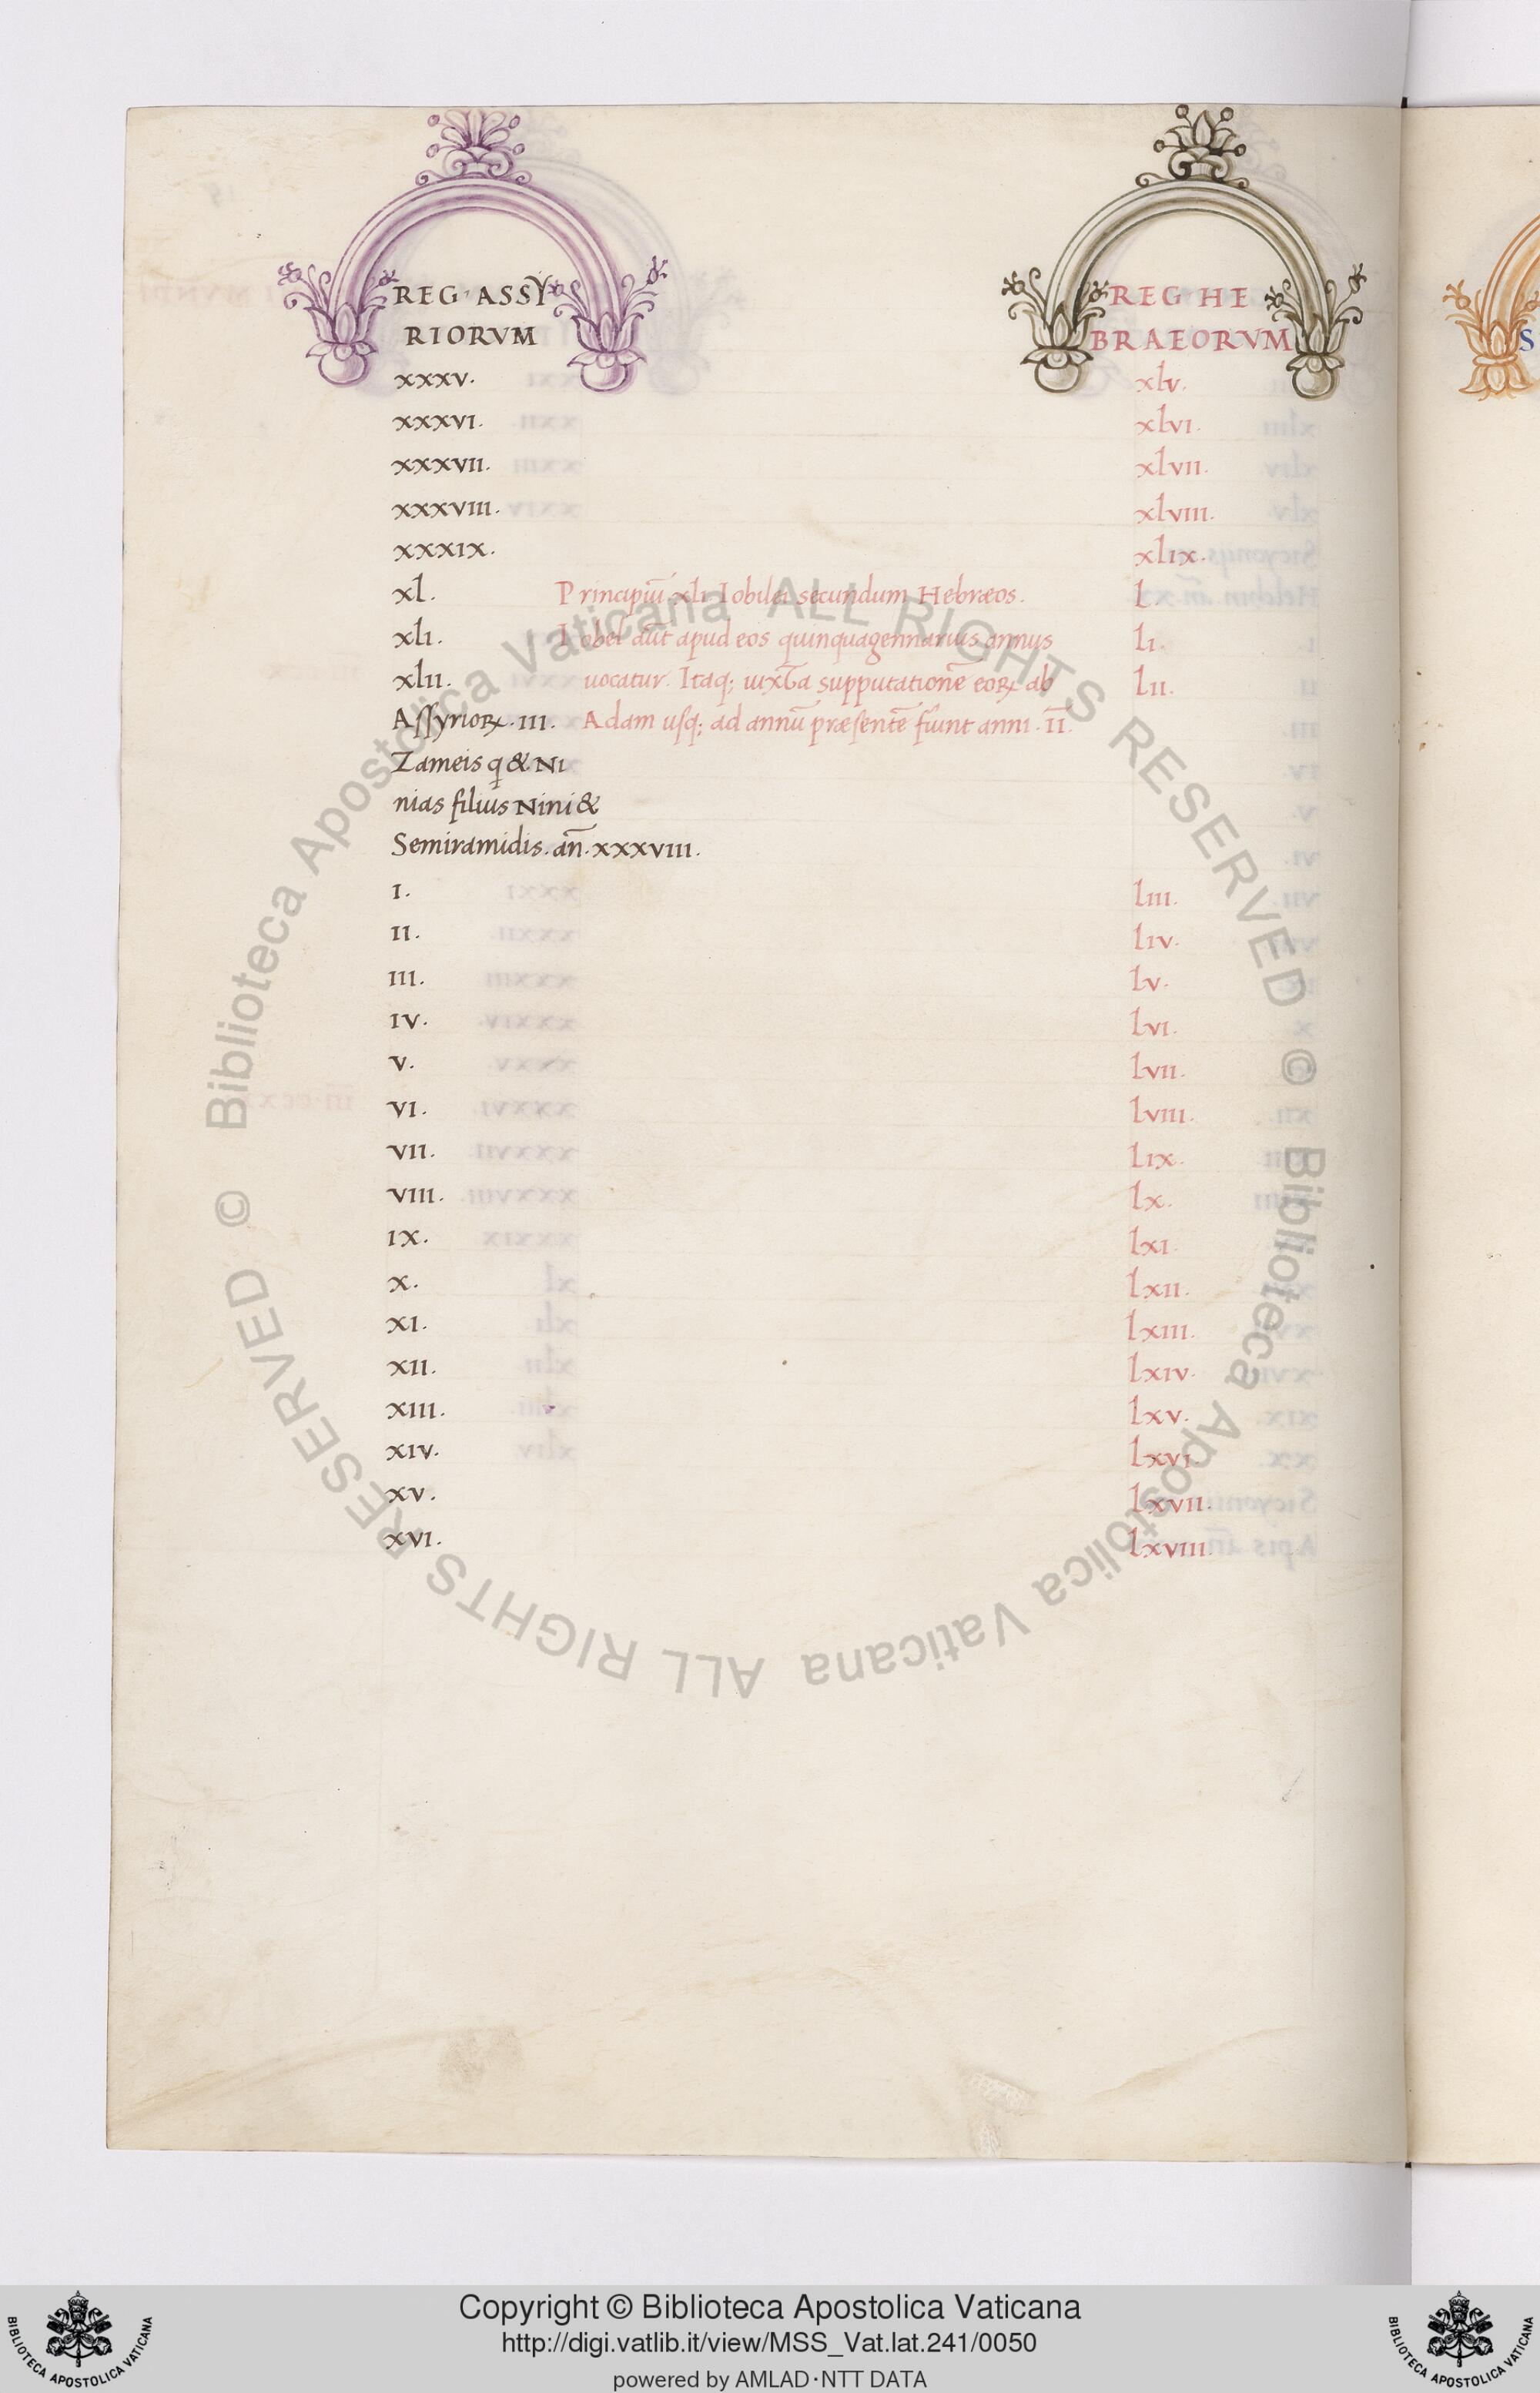 REG· ASSY
RIORVM
REG HE
BRAEORVM
xxxv. xlv.
xxxvi. xlvi.
xxxvii. xlvii.
xxxviii. xlviii.
xxxix. xlix.
xl. Principiū xli Iobilei secundum Hebræos. l
xli. Iobel aūt apud eos quinquagennarius annus li.
xlii. uocatur. Itaq; iuxta supputationē eoꝝ ab lii.
Aſſyrioꝝ. III. Adam uſq; ad annū præſentē fiunt anni. īī.
Zameis q̄ & Ni
nias filius Nini &
Semiramidis. an̄. xxxviii.
i. liii.
ii. liv.
iii. lv.
iv. lvi.
v. lvii.
vi. lviii.
vii. lix.
viii. lx.
ix. lxi.
x. lxii.
xi. lxiii.
xii. lxiv.
xiii. lxv.
xiv. lxvi.
xv. lxvii.
xvi. lxviii.
© Biblioteca Apostolica Vaticana ALL RIGHTS RESERVED
© Biblioteca Apostolica Vaticana ALL RIGHTS RESERVED
S
Copyright © Biblioteca Apostolica Vaticana
http://digi.vatlib.it/view/MSS_Vat.lat.241/0050
powered by AMLAD·NTT DATA
BIBLIOTECA APOSTOLICA VATICANA
BIBLIOTECA APOSTOLICA VATICANA